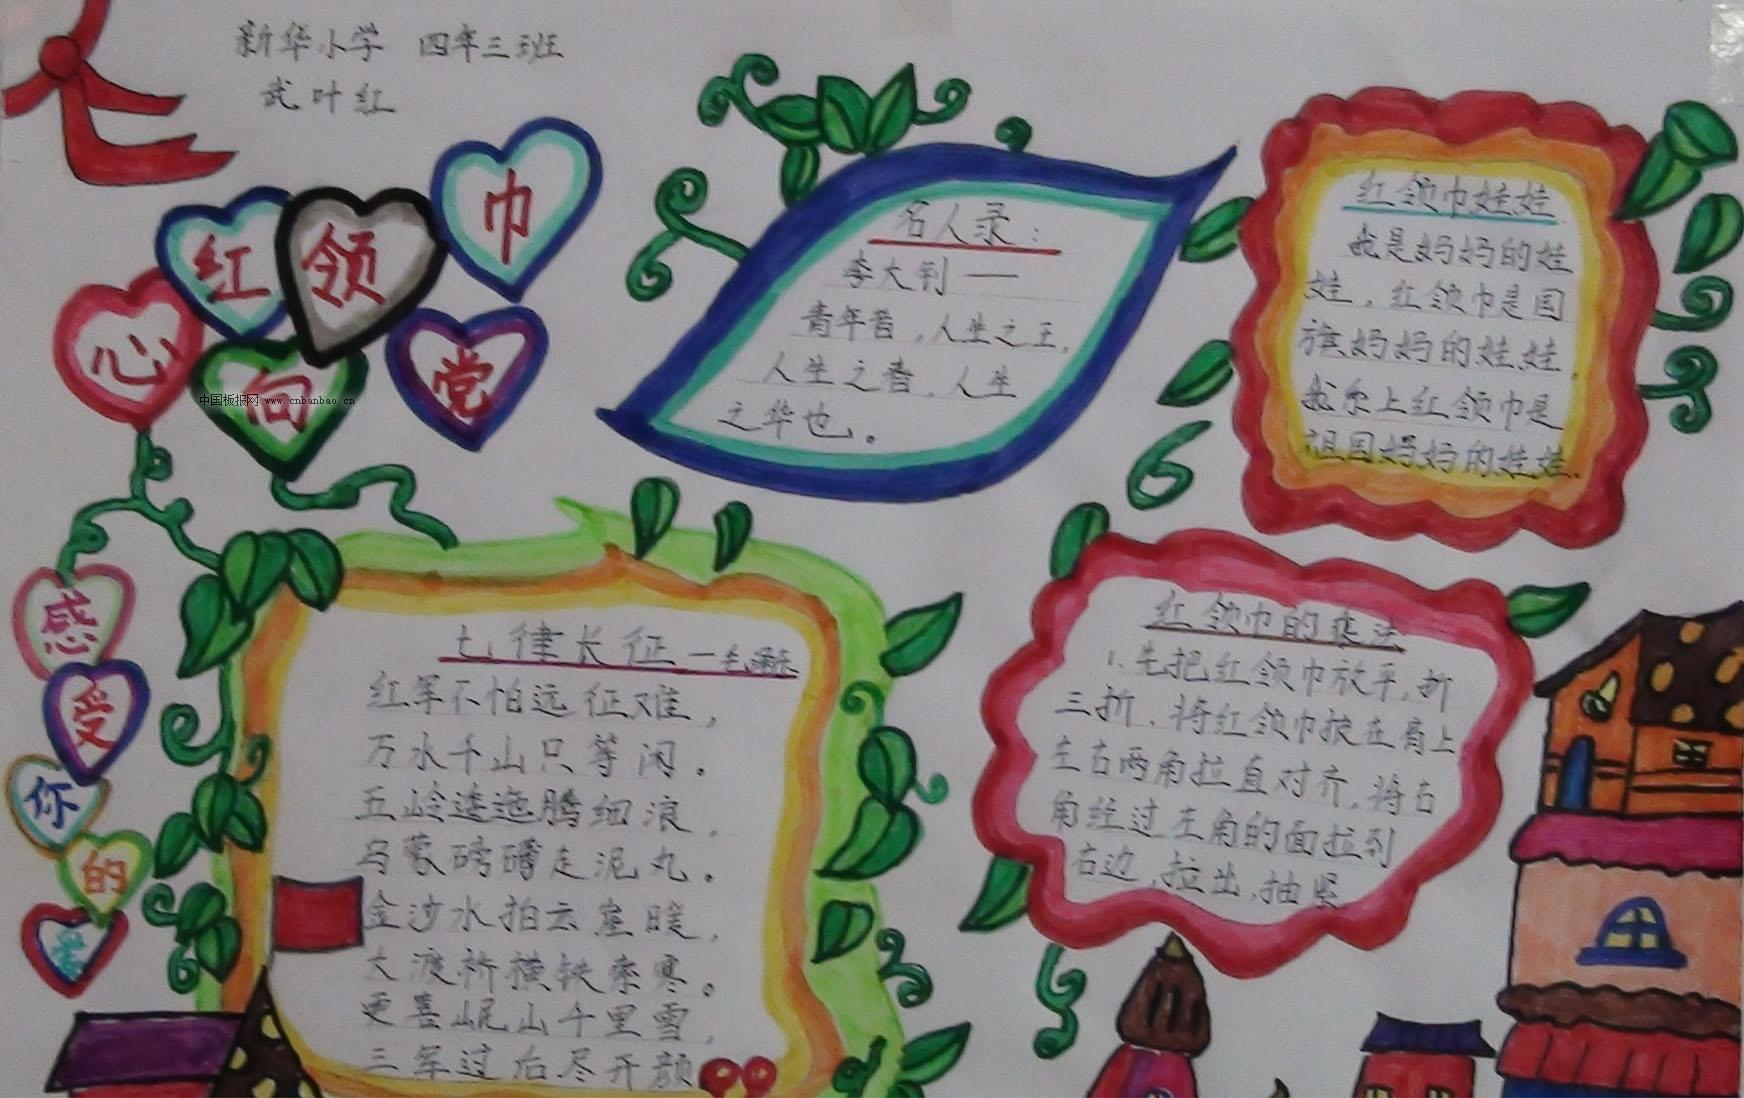 新华小学 四年三班
武叶红
红领巾
心向党
中国板报网 www.cnbanbao.cn
感受你的爱
名人录：
李大钊——
青年者，人生之王，
人生之春，人生
之华也。
红领巾娃娃
我是妈妈的娃
娃，红领巾是国
旗妈妈的娃娃，
我系上红领巾是
祖国妈妈的娃娃．
七律长征—毛泽东
红军不怕远征难，
万水千山只等闲。
五岭逶迤腾细浪，
乌蒙磅礴走泥丸。
金沙水拍云崖暖，
大渡桥横铁索寒。
更喜岷山千里雪，
三军过后尽开颜
红领巾的系法
1.先把红领巾放平，折
三折，将红领巾披在肩上
左右两角拉直对齐，将右
角经过左角的面拉到
右边，拉出，抽紧